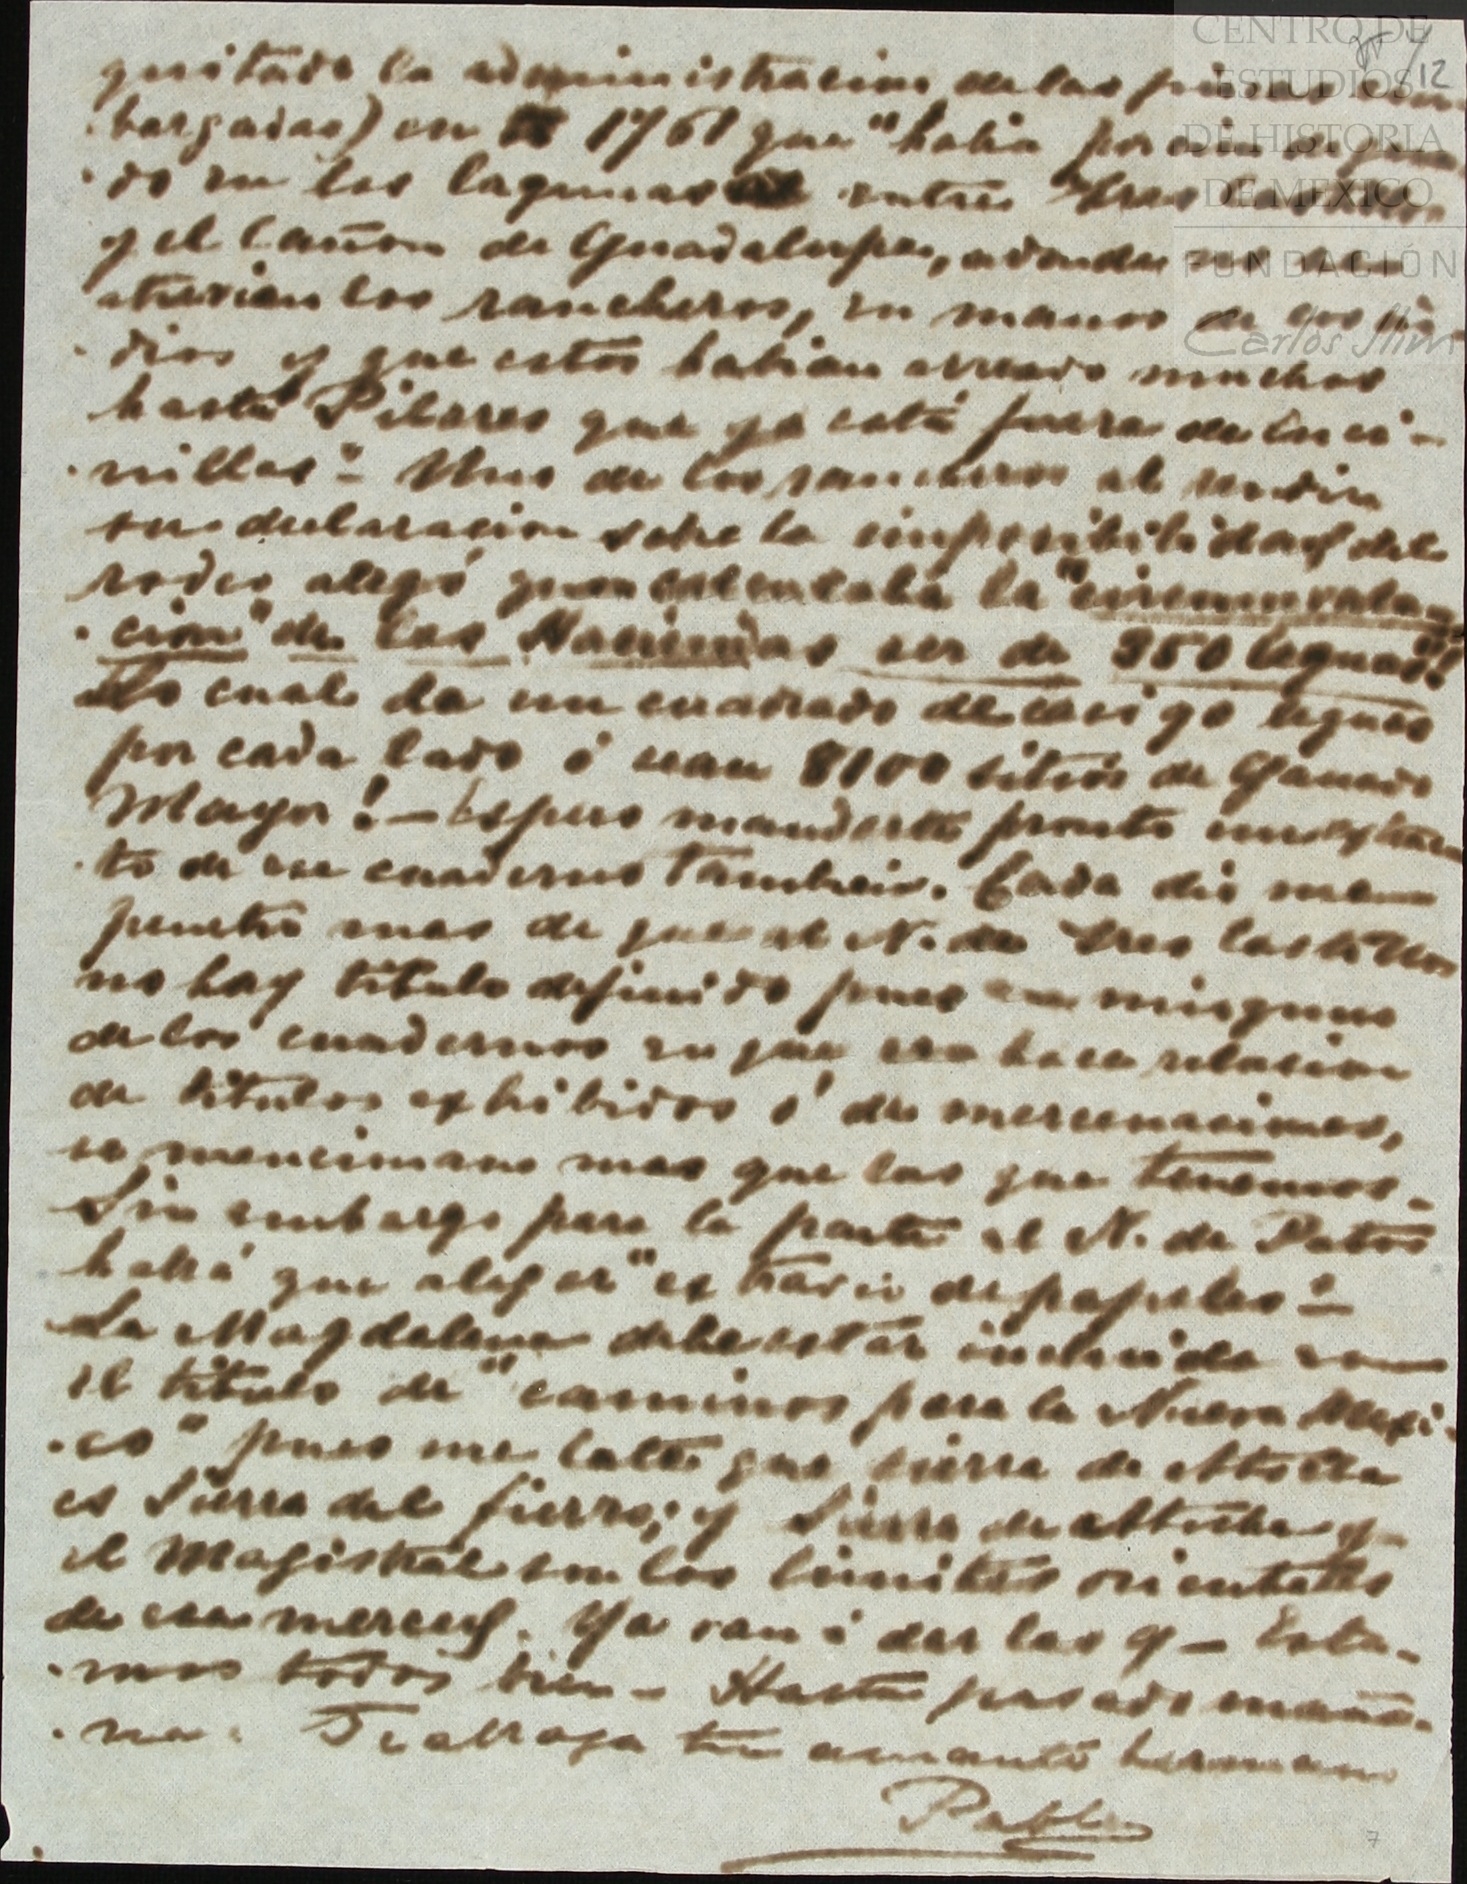 CENTRO DE
ESTUDIOS
DE HISTORIA
DE MEXICO
FUNDACIÓN
Carlos Slim
12
quitado la administracion de las fincas em
bargadas) en 1761 que "habia porcion de gana
do en las lagunas entre tres Castillos
y el Cañon de Guadalupe, adonde no se
atrevian los rancheros, en manos de los in
dios y que estos habian arreado muchos
hasta Pilares que ya está fuera de Enci-
nillas"- Uno de los rancheros al rendir
su declaracion sobre la imposibilidad del
rodeo alegó que calculaba la "circunvala-
cion" de las Haciendas ser de 350 leguas!!
Lo cual da un cuadrado de casi 90 leguas
por cada lado ó sean 8100 sitios de Ganado
Mayor!- Espero mandarte pronto un extrac
to de ese cuaderno tambien. Cada dia me
penetro mas de que al N. de tres Castillos
no hay titulo definido pues en ninguno
de los cuadernos en que se hace relacion
de titulos exhibidos ó de mercenaciones,
se mencionan mas que las que tenemos.
Sin embargo para la parte al N. de Patos
habrá que alegar "extravio de papeles"-
La Magdalena debe estar incluida en
el titulo de "caminos para la Nueva Mexi-
co" pues me late que sierra de
es Sierra del fierro; y Sierra de y
el Magistral son los limites orientales
de esa merced. Ya van á dar las 9- Esta-
mos todos bien- Hasta pasado maña-
na. Te abraza tu amante hermano
Pablo
7